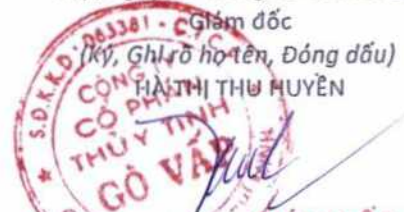 Giám đốc
(Ký, Ghi rõ họ tên, Đóng dấu)
HÀ THỊ THU HUYỀN
S.Đ.K.K.D: 063381 - C.T.C
CÔNG TY
CỔ PHẦN
THỦY TINH
GÒ VẤP